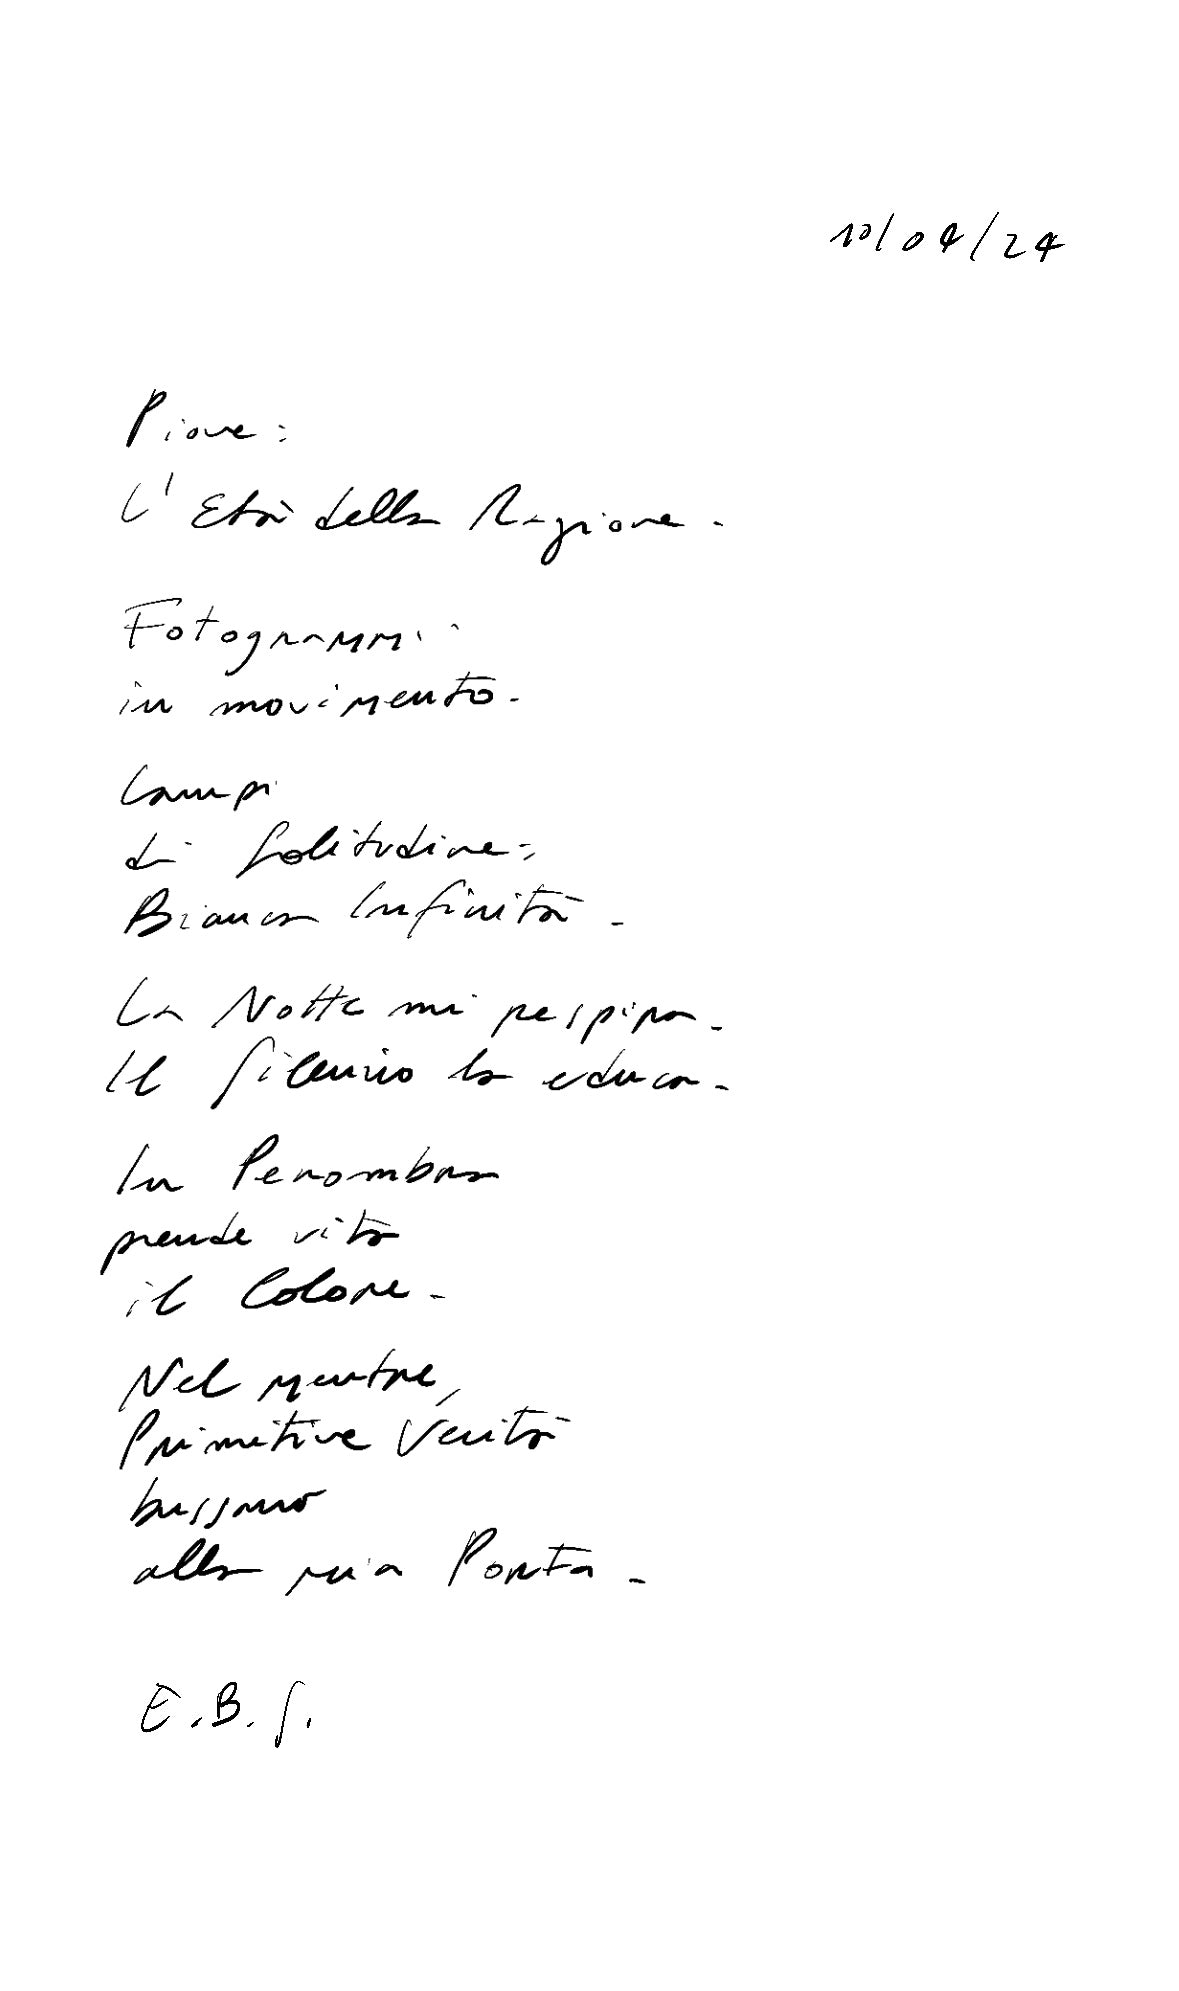 10/04/24
Piove:
L'Età della Ragione.
Fotogrammi
in movimento.
Campi
di Solitudine;
Bianca Infinità.
La Notte mi respira.
Il Silenzio la educa.
In Penombra
prende vita
il Colore.
Nel mentre,
Primitive Verità
bussano
alla mia Porta.
E.B.S.